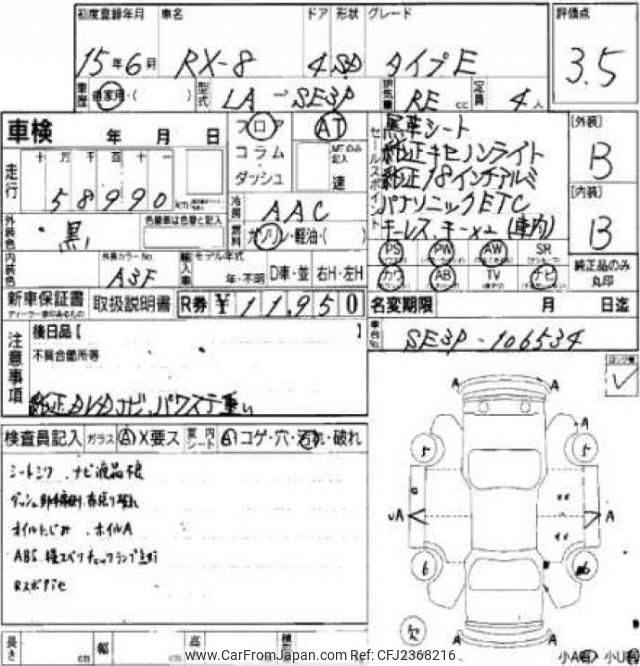 初度登録年月 車名 ドア 形状 グレード 評価点
15年6月 RX-8 4 SD タイプE 3.5
車歴 自家用・( ) 型式 LA-SE3P 排気量 RE cc 定員 4人
車検 年 月 日 フロア AT 黒革シート [外装]
コラム・ MTのみ記入 純正キセノンライト B
走行 十 万 千 百 十 一 ダッシュ 速 純正18インチアルミ
58990 km 冷房 AAC パナソニックETC [内装]
外装色 黒 色替車は色替と記入 燃料 ガソリン・軽油・( ) キーレス、キー×2 (車内) B
セールスポイント
内装色 外装カラーNo. A3F 輸入車 モデル年式 年・不明 D車・並 右H・左H PS PW AW SR
カワ AB TV ナビ 純正品のみ丸印
新車保証書 取扱説明書 R券 ¥11,950 名変期限 月 日迄
ディーラー印のあるもの
注意事項 後日品 [ ] 車台No. SE3P-106534
不具合箇所等
純正DVDナビ、パワステ重い
検査員記入 ガラス A X要ス 室内 シート A コゲ・穴・汚れ・破れ
シートシワ ナビ液晶不良
オイルにじみ ホイルA
A A
A
5 5
UA A
6
欠
A A
長さ cm 幅 cm 高
小A有 小U有
www.CarFromJapan.com Ref: CFJ2368216